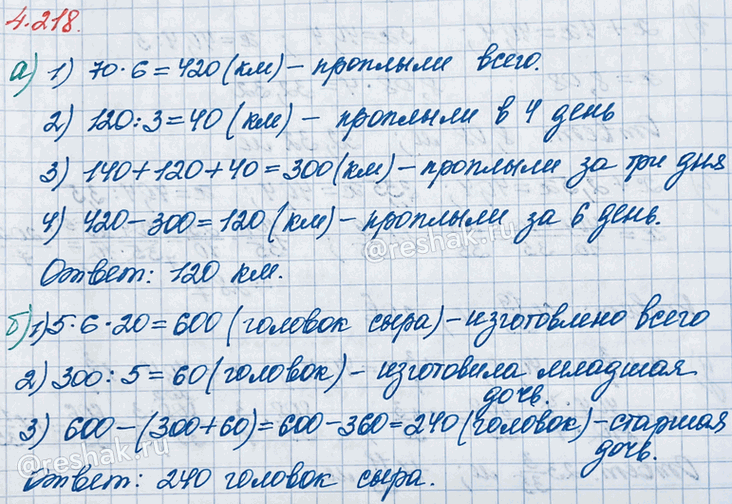 4.218.
а) 1) 70·6=420 (км) – проплыли всего.
2) 120:3=40 (км) – проплыли в 4 день
3) 140+120+40=300 (км) – проплыли за три дня
4) 420-300=120 (км) – проплыли за 6 день.
@reshak.ru
Ответ: 120 км.
б) 1) 5·6·20=600 (головок сыра) – изготовлено всего
2) 300:5=60 (головок) – изготовила младшая
дочь.
3) 600-(300+60)=600-360=240 (головок) – старшая
дочь.
@reshak.ru
Ответ: 240 головок сыра.